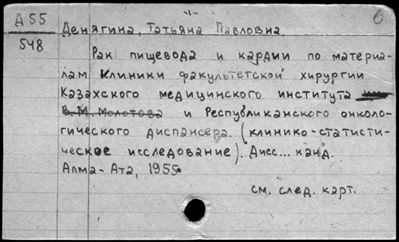 Д55
548
6
Денягина, Татьяна Павловна.
Рак пищевода и кардии по материа-
лам клиники факультетской хирургии
Казахского медицинского института
В.М. Молотова и Республиканского онколо-
гического диспансера. (клинико-статисти-
ческое исследование). Дисс... канд.
Алма-Ата, 1955
см. след. карт.